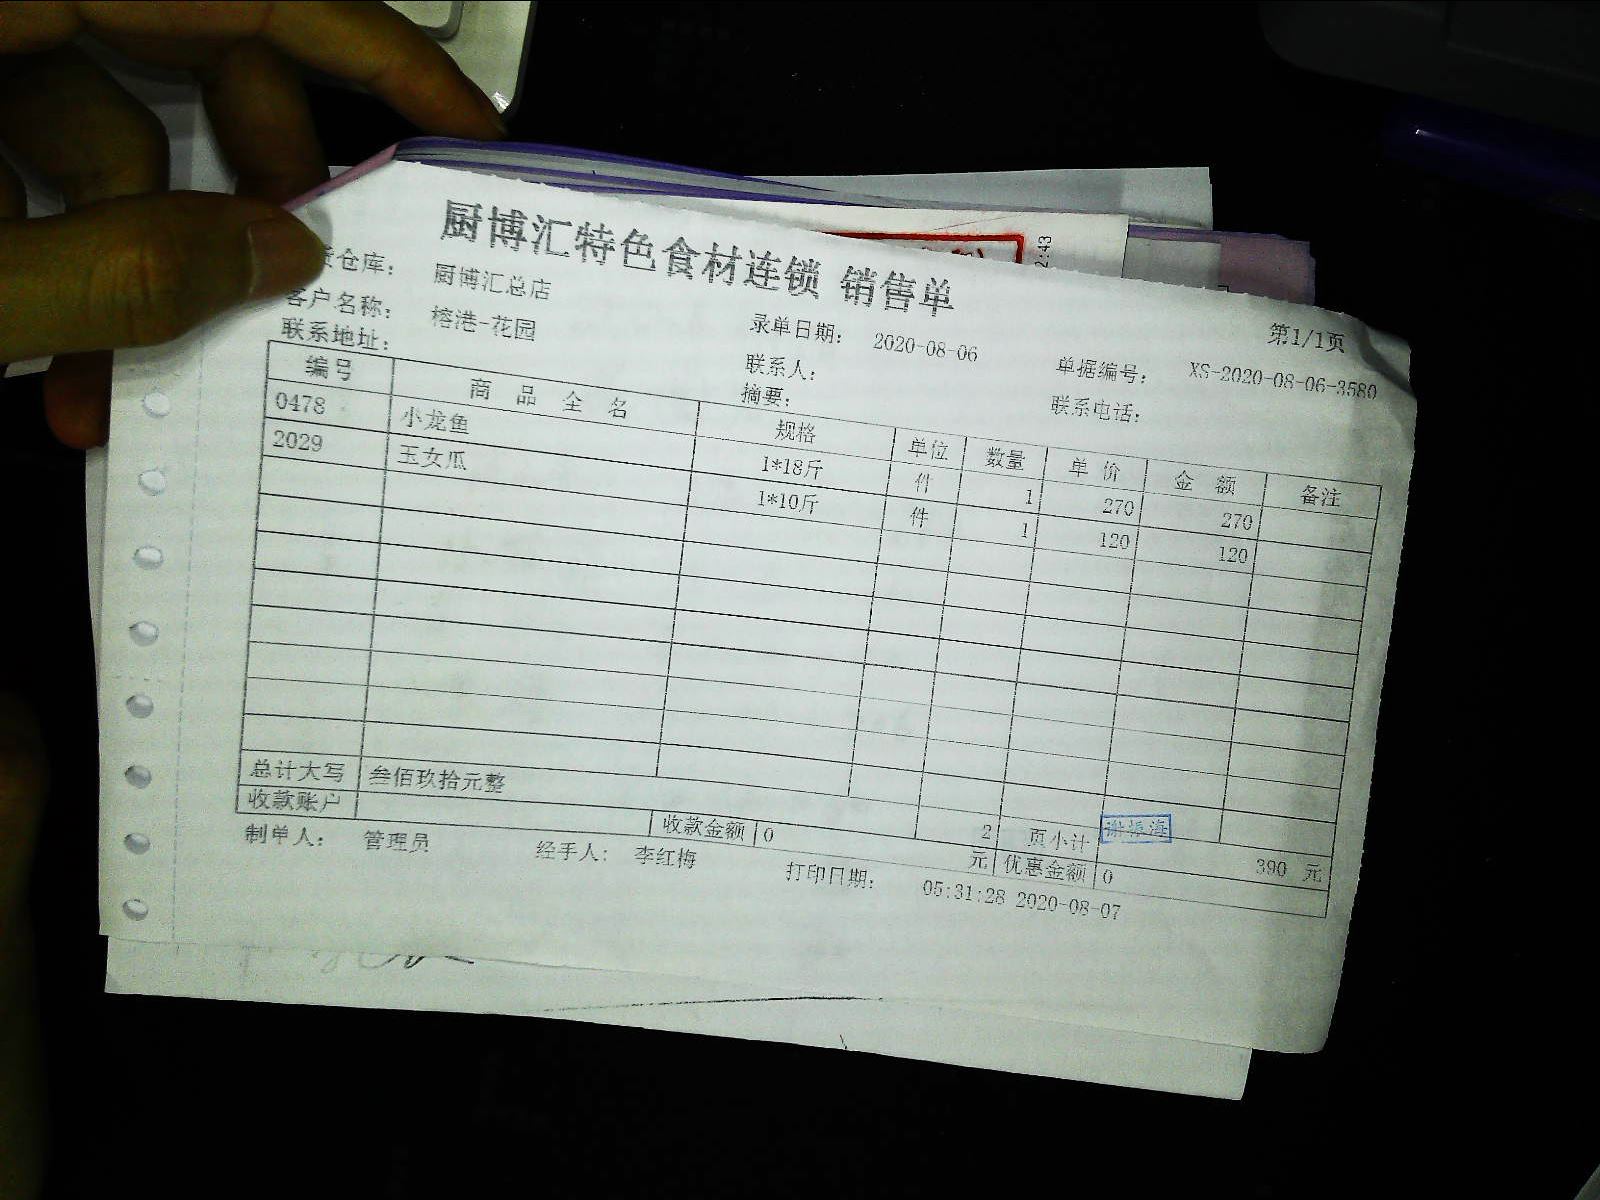 厨博汇特色食材连锁 销售单
仓库： 厨博汇总店
客户名称： 榕港-花园 录单日期： 2020-08-06 第1/1页
联系地址： 联系人： 单据编号： XS-2020-08-06-3580
摘要： 联系电话：
编号 商品全名 规格 单位 数量 单价 金额 备注
0478 小龙鱼 1*18斤 件 1 270 270
2029 玉女瓜 1*10斤 件 1 120 120
总计大写 叁佰玖拾元整 2 页小计 390 元
谢振海
收款账户 收款金额 0 元 优惠金额 0
制单人： 管理员 经手人： 李红梅 打印日期： 05:31:28 2020-08-07
2:43